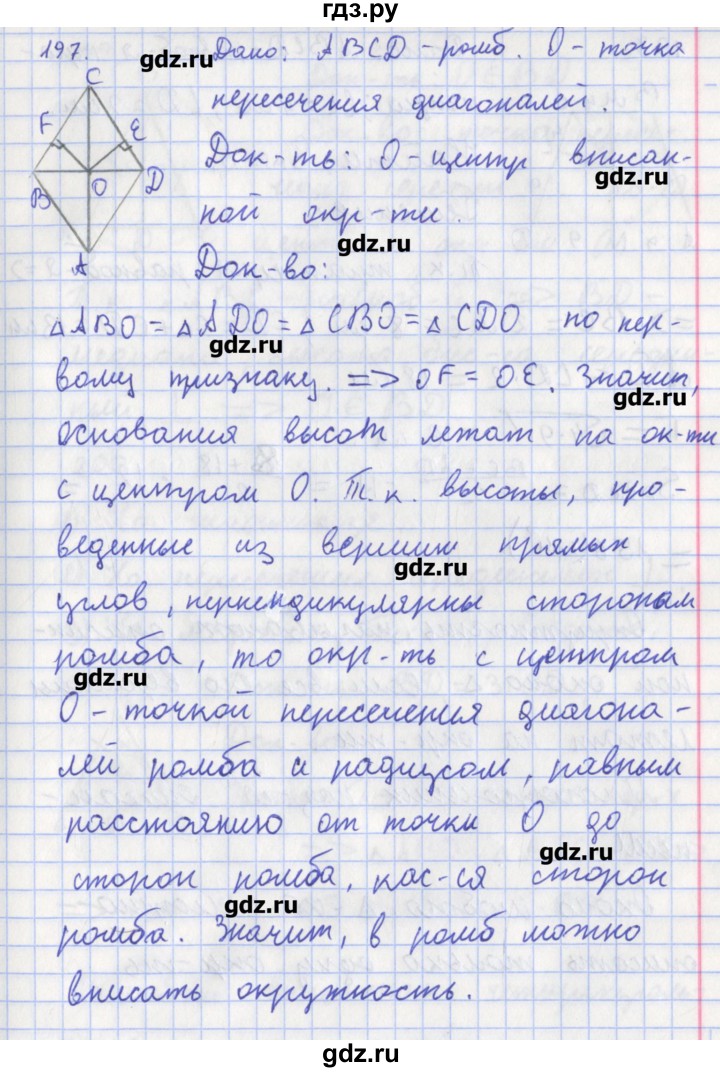 гдз.ру
197. Дано: ABCD - ромб. O - точка
gdz.ru
C
пересечения диагоналей.
F E
Док-ть: O - центр вписан-
gdz.ru
B O D
ной окр-ти.
gdz.ru
A
Док-во:
△ABO = △ADO = △CBO = △CDO по пер-
gdz.ru
вому признаку. => OF = OE. Значит,
gdz.ru
основания высот лежат на ок-ти
с центром O. Т.к. высоты, про-
веденные из вершин прямых
gdz.ru
углов, перпендикулярны сторонам
ромба, то окр-ть с центром
gdz.ru
O - точкой пересечения диагона-
лей ромба и радиусом, равным
расстоянию от точки O до
gdz.ru
сторон ромба, кас-ся сторон
gdz.ru
ромба. Значит, в ромб можно
вписать окружность.
gdz.ru